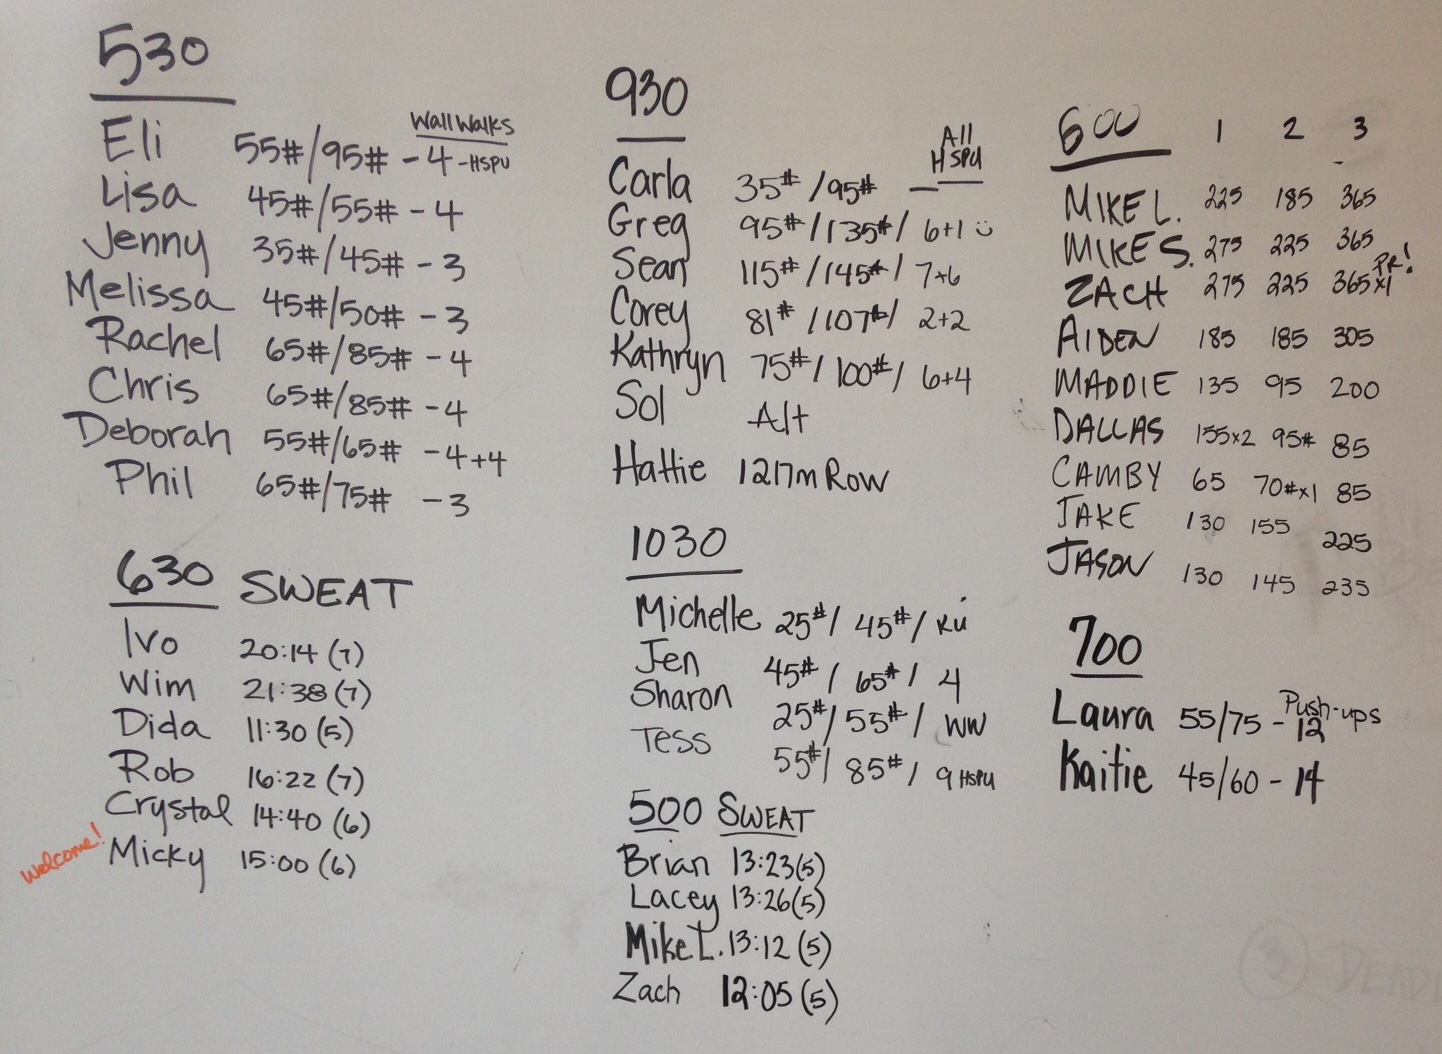 530
Wall Walks
Eli 55#/95# - 4 - HSPU
Lisa 45#/55# - 4
Jenny 35#/45# - 3
Melissa 45#/50# - 3
Rachel 65#/85# - 4
Chris 65#/85# - 4
Deborah 55#/65# - 4+4
Phil 65#/75# - 3
630 SWEAT
Ivo 20:14 (7)
Wim 21:38 (7)
Dida 11:30 (5)
Rob 16:22 (7)
Crystal 14:40 (6)
welcome! Micky 15:00 (6)
930
All
HSPU
Carla 35#/95# —
Greg 95#/135#/ 6+1 ☺
Sean 115#/145#/ 7+6
Corey 81#/107#/ 2+2
Kathryn 75#/100#/ 6+4
Sol Alt
Hattie 1217m Row
1030
Michelle 25#/ 45#/ KU
Jen 45#/ 65#/ 4
Sharon 25#/ 55#/ WW
Tess 55#/ 85#/ 9 HSPU
500 SWEAT
Brian 13:23 (5)
Lacey 13:26 (5)
Mike L. 13:12 (5)
Zach 12:05 (5)
600 1 2 3
MIKE L. 225 185 365
MIKE S. 275 225 365
ZACH 275 225 365x1 PR!
AIDEN 185 185 305
MADDIE 135 95 200
DALLAS 155x2 95# 85
CAMBY 65 70#x1 85
JAKE 130 155 225
JASON 130 145 235
700
Push-ups
Laura 55/75 - 12
Kaitie 45/60 - 14